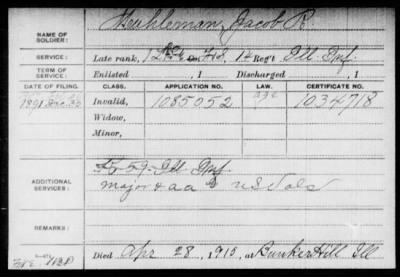 NAME OF SOLDIER: Kuhleman, Jacob R.
SERVICE: Late rank, F&S, 17 Reg't Ill Inf.
TERM OF SERVICE: Enlisted , 1 Discharged , 1
DATE OF FILING. CLASS. APPLICATION NO. LAW. CERTIFICATE NO.
1891 Dec. 30 Invalid, 1085052 age 1034718
Widow,
Minor,
ADDITIONAL SERVICES: 59 Ill Inf
Major & a a G U S Vols
REMARKS:
Died Apr 28, 1915, at Bunker Hill Ill